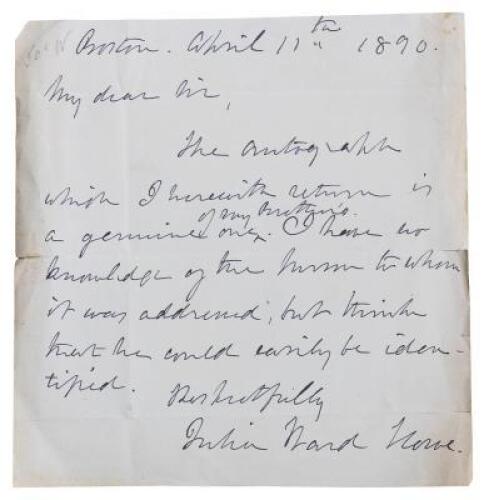 Boston. April 11th 1890.
My dear Sir,
The autograph
which I herewith return is
of my brother's.
a genuine one. I have no
knowledge of the person to whom
it was addressed, but think
that he could easily be iden-
tified.
Respectfully
Julia Ward Howe.